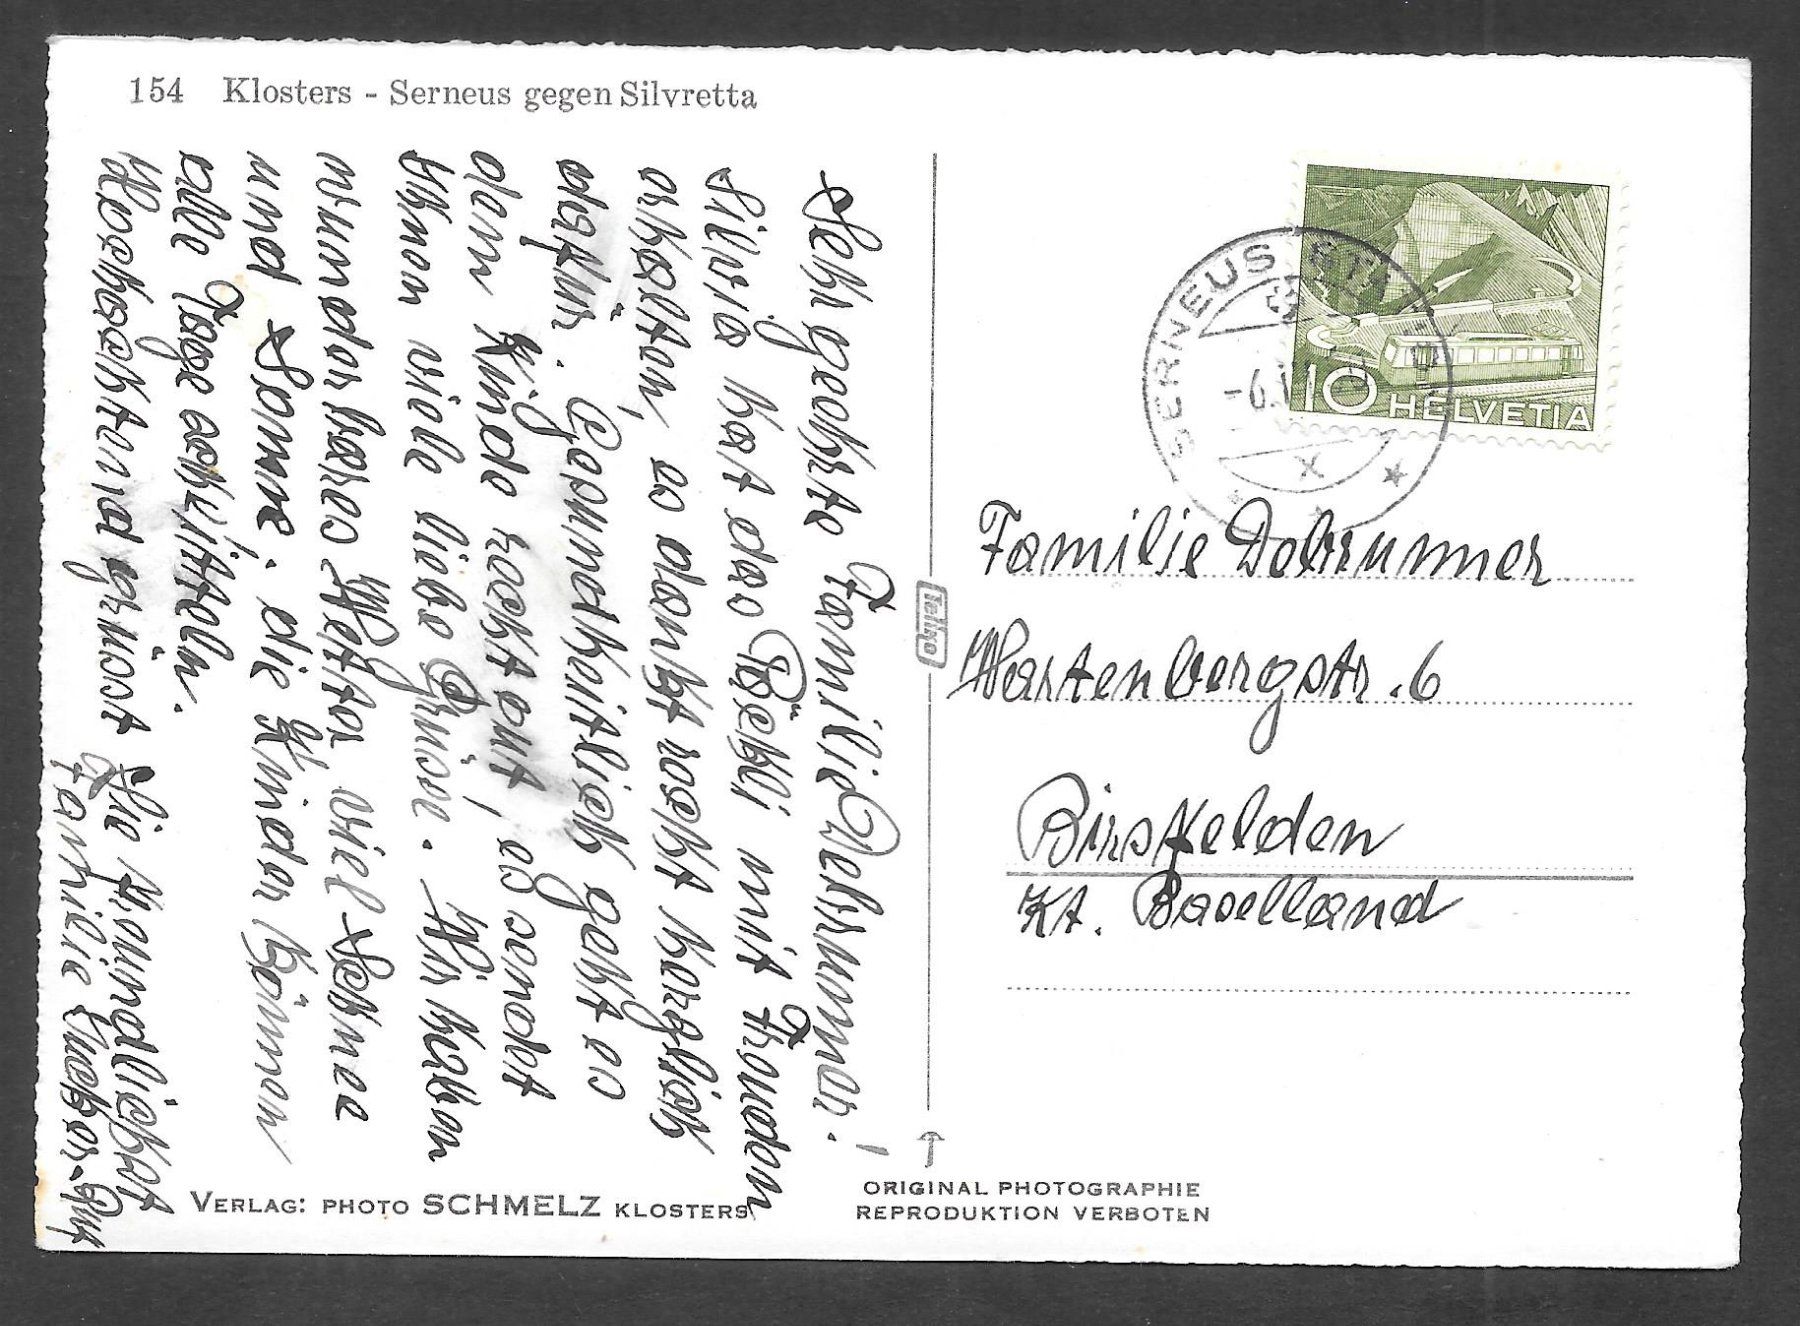 154 Klosters - Serneus gegen Silvretta
Sehr geehrte Familie Debrunner!
Silvia hat das Päckli mit Freuden
erhalten, es dankt recht herzlich
dafür. Gesundheitlich geht es
dem Kinde recht gut, es sendet
Ihnen viele liebe Grüsse. Wir haben
wunderbares Wetter, viel Schnee
und Sonne, die Kinder können
alle Tage schlitteln.
Hochachtend grüsst Sie freundlichst
Familie
SERNEUS
-6.
X
10 HELVETIA
Familie Debrunner
Wartenbergstr. 6
Birsfelden
Kt. Baselland
Telko
VERLAG: PHOTO SCHMELZ KLOSTERS
ORIGINAL PHOTOGRAPHIE
REPRODUKTION VERBOTEN